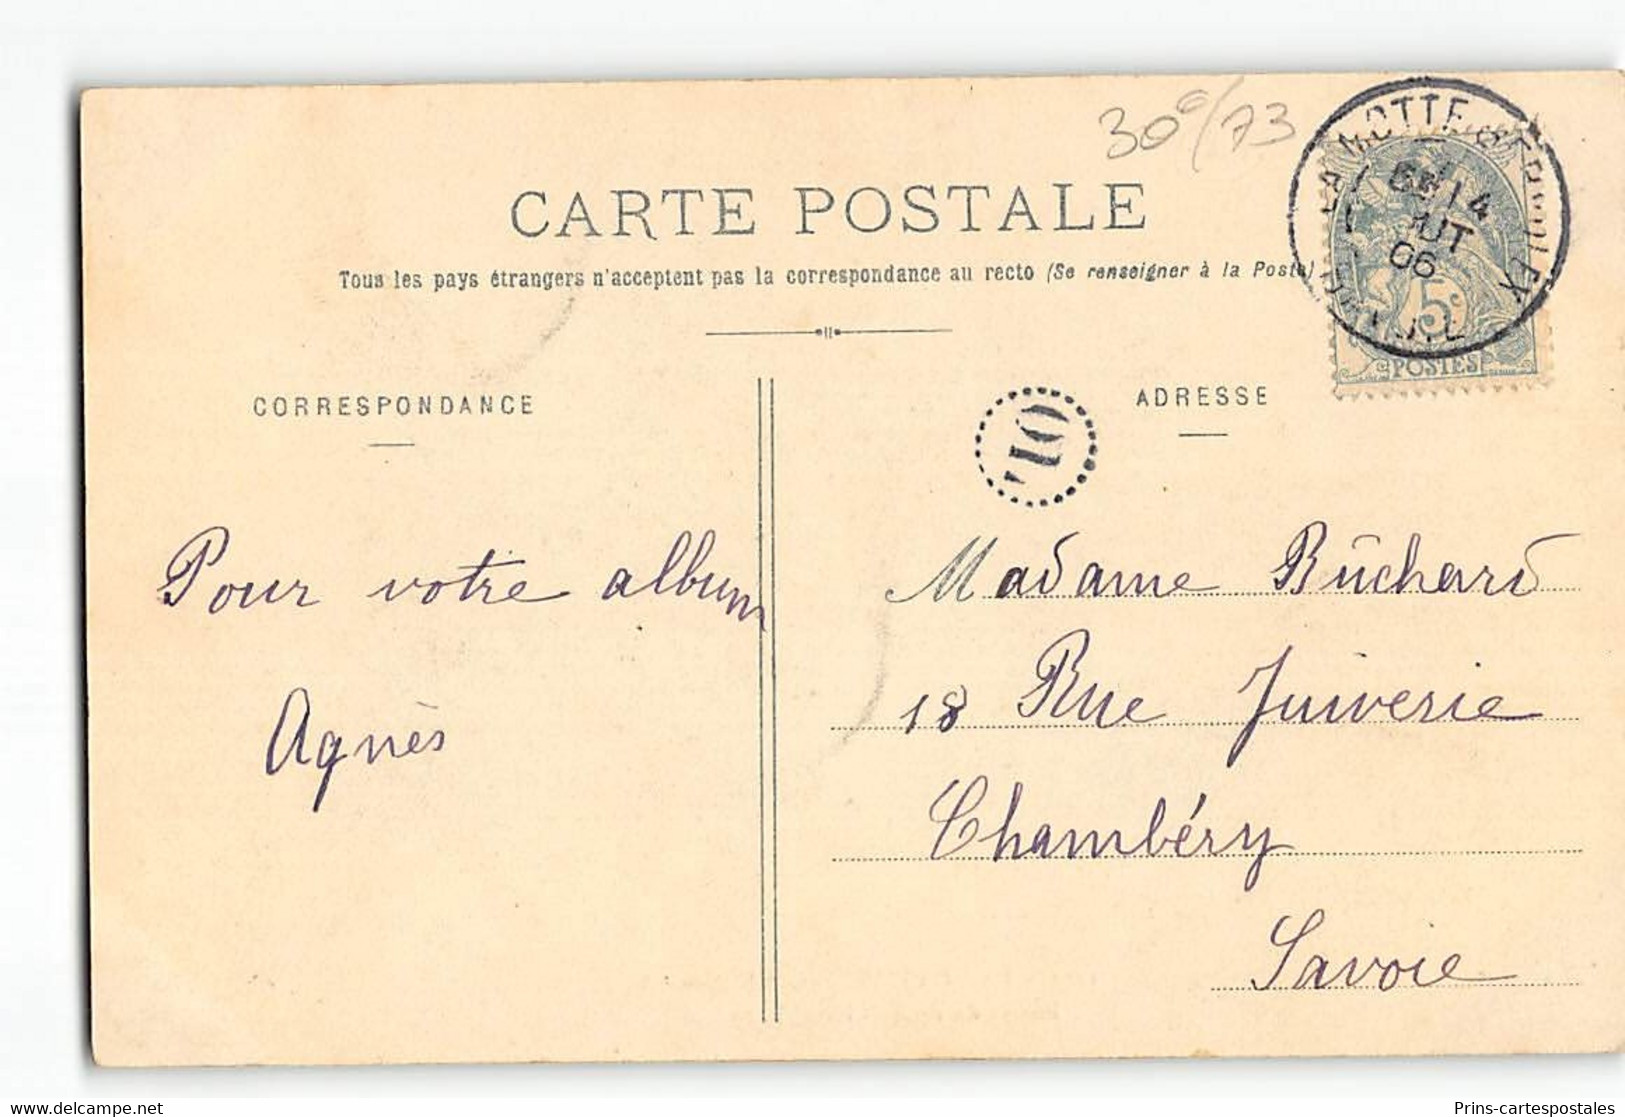 30c/73
CARTE POSTALE
Tous les pays étrangers n'acceptent pas la correspondance au recto (Se renseigner à la Poste)
LA MOTTE SERVOLEX
14
OUT
06
5c
POSTES
CORRESPONDANCE
ADRESSE
OL
Pour votre album
Agnès
Madame Rûchard
18 Rue Juiverie
Chambéry
Savoie
www.delcampe.net
Prins-cartespostales